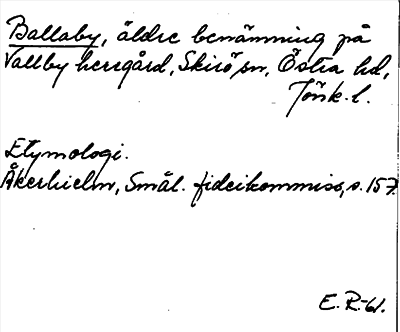 Ballaby, äldre benämning på
Vallby herrgård, Skirö sn, Östra hd,
Jönk. l.
Etymologi.
Åkerhielm, Smål. fideikommiss, s. 157.
E. R-61.